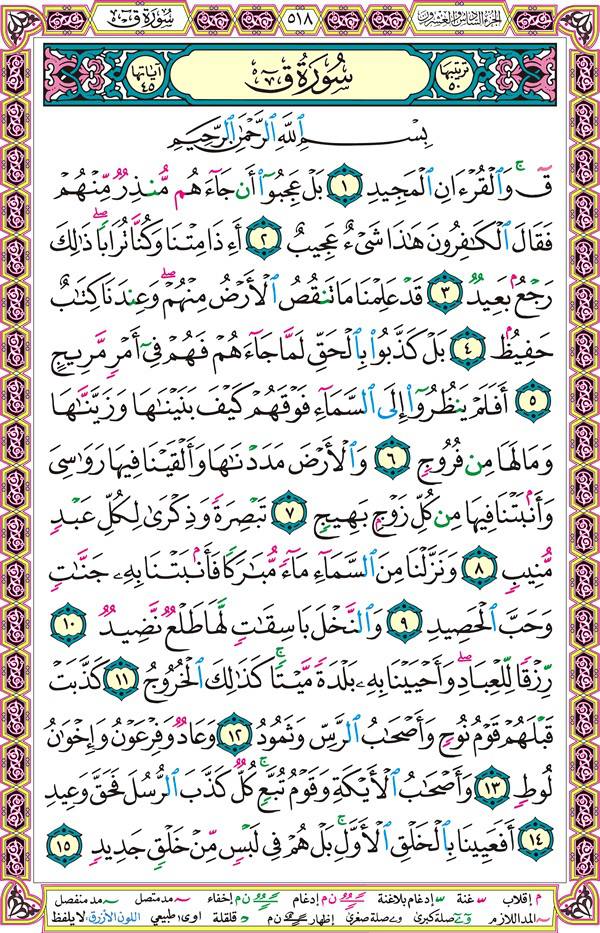 الجزء السادس والعشرون ٥١٨ سُورَةُ قٓ
ترتيبها ٥٠ سُورَةُ قٓ آياتها ٤٥
بِسْمِ ٱللَّهِ ٱلرَّحْمَٰنِ ٱلرَّحِيمِ
قٓ ۚ وَٱلْقُرْءَانِ ٱلْمَجِيدِ ١ بَلْ عَجِبُوٓا۟ أَن جَآءَهُم مُّنذِرٌ مِّنْهُمْ
فَقَالَ ٱلْكَٰفِرُونَ هَٰذَا شَىْءٌ عَجِيبٌ ٢ أَءِذَا مِتْنَا وَكُنَّا تُرَابًا ۖ ذَٰلِكَ
رَجْعٌۢ بَعِيدٌ ٣ قَدْ عَلِمْنَا مَا تَنقُصُ ٱلْأَرْضُ مِنْهُمْ ۖ وَعِندَنَا كِتَٰبٌ
حَفِيظٌۢ ٤ بَلْ كَذَّبُوا۟ بِٱلْحَقِّ لَمَّا جَآءَهُمْ فَهُمْ فِىٓ أَمْرٍ مَّرِيجٍ
٥ أَفَلَمْ يَنظُرُوٓا۟ إِلَى ٱلسَّمَآءِ فَوْقَهُمْ كَيْفَ بَنَيْنَٰهَا وَزَيَّنَّٰهَا
وَمَا لَهَا مِن فُرُوجٍ ٦ وَٱلْأَرْضَ مَدَدْنَٰهَا وَأَلْقَيْنَا فِيهَا رَوَٰسِىَ
وَأَنۢبَتْنَا فِيهَا مِن كُلِّ زَوْجٍۭ بَهِيجٍ ٧ تَبْصِرَةً وَذِكْرَىٰ لِكُلِّ عَبْدٍ
مُّنِيبٍ ٨ وَنَزَّلْنَا مِنَ ٱلسَّمَآءِ مَآءً مُّبَٰرَكًا فَأَنۢبَتْنَا بِهِۦ جَنَّٰتٍ
وَحَبَّ ٱلْحَصِيدِ ٩ وَٱلنَّخْلَ بَاسِقَٰتٍ لَّهَا طَلْعٌ نَّضِيدٌ ١٠
رِّزْقًا لِّلْعِبَادِ ۖ وَأَحْيَيْنَا بِهِۦ بَلْدَةً مَّيْتًا ۚ كَذَٰلِكَ ٱلْخُرُوجُ ١١ كَذَّبَتْ
قَبْلَهُمْ قَوْمُ نُوحٍ وَأَصْحَٰبُ ٱلرَّسِّ وَثَمُودُ ١٢ وَعَادٌ وَفِرْعَوْنُ وَإِخْوَٰنُ
لُوطٍ ١٣ وَأَصْحَٰبُ ٱلْأَيْكَةِ وَقَوْمُ تُبَّعٍ ۚ كُلٌّ كَذَّبَ ٱلرُّسُلَ فَحَقَّ وَعِيدِ
١٤ أَفَعَيِينَا بِٱلْخَلْقِ ٱلْأَوَّلِ ۚ بَلْ هُمْ فِى لَبْسٍ مِّنْ خَلْقٍ جَدِيدٍ ١٥
م إقلاب غنة إدغام بلاغنة ن م إدغام ن م إخفاء مد متصل مد منفصل
المد اللازم صلة كبرى صلة صغرى إظهار ن م قلقلة اوى طبيعي اللون الأزرق لا يلفظ